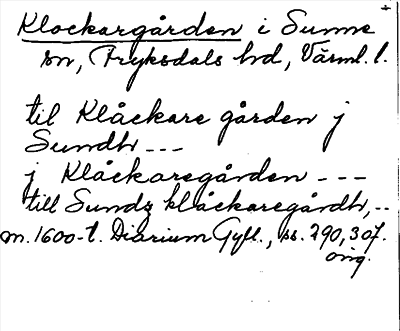 Klockargården i Sunne
sn, Fryksdals hd, Värml. l.
til Klåckare gården j
Sundh ---
j Klåckaregården ---
till Sundz klåckaregårdh, --
m. 1600-t. Diarium Gyll., ss. 290, 307.
orig.